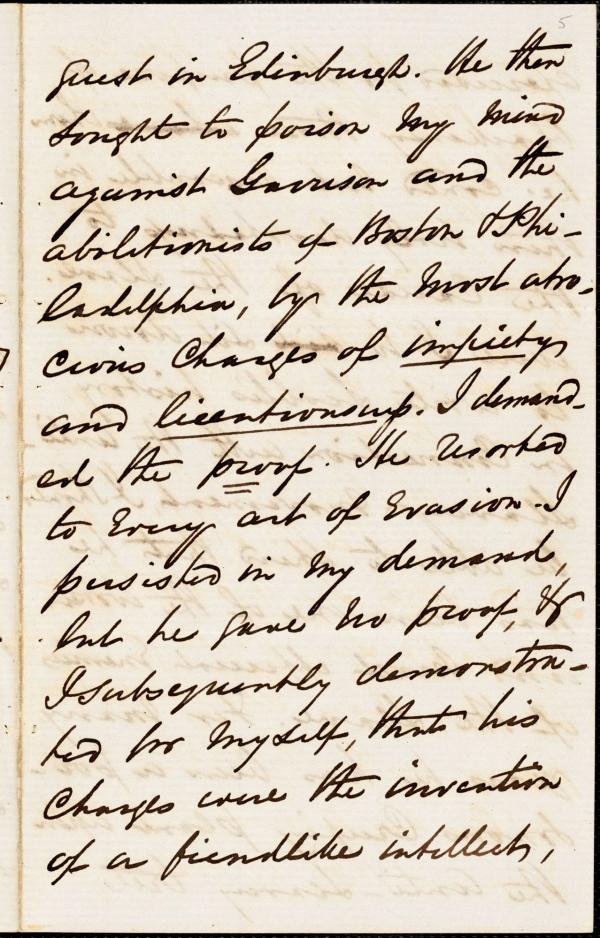 5
guest in Edinburgh. He then
sought to poison my mind
against Garrison and the
abolitionists of Boston & Phi-
ladelphia, by the most atro-
cious charges of impiety
and licentiousness. I demand-
ed the proof. He resorted
to every art of evasion. I
persisted in my demand,
but he gave no proof, &
I subsequently demonstra-
ted for myself, that his
charges were the invention
of a fiendlike intellect,